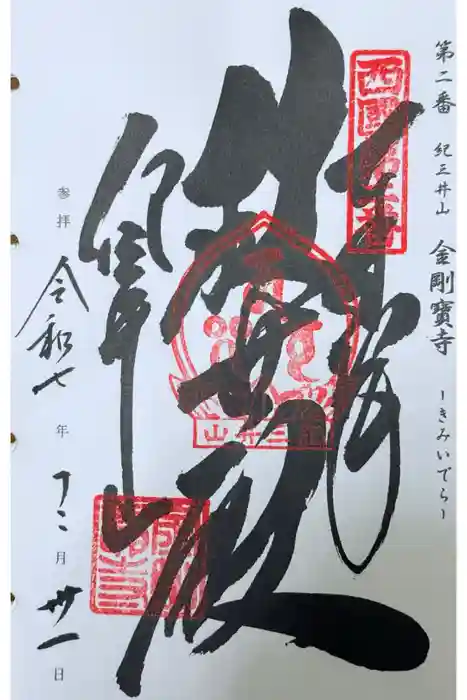 第二番 紀三井山 金剛寳寺 ーきみいでらー
西國第二番
奉拝
救世殿
紀三井山
紀三井山
参拝 令和七年十二月卅一日